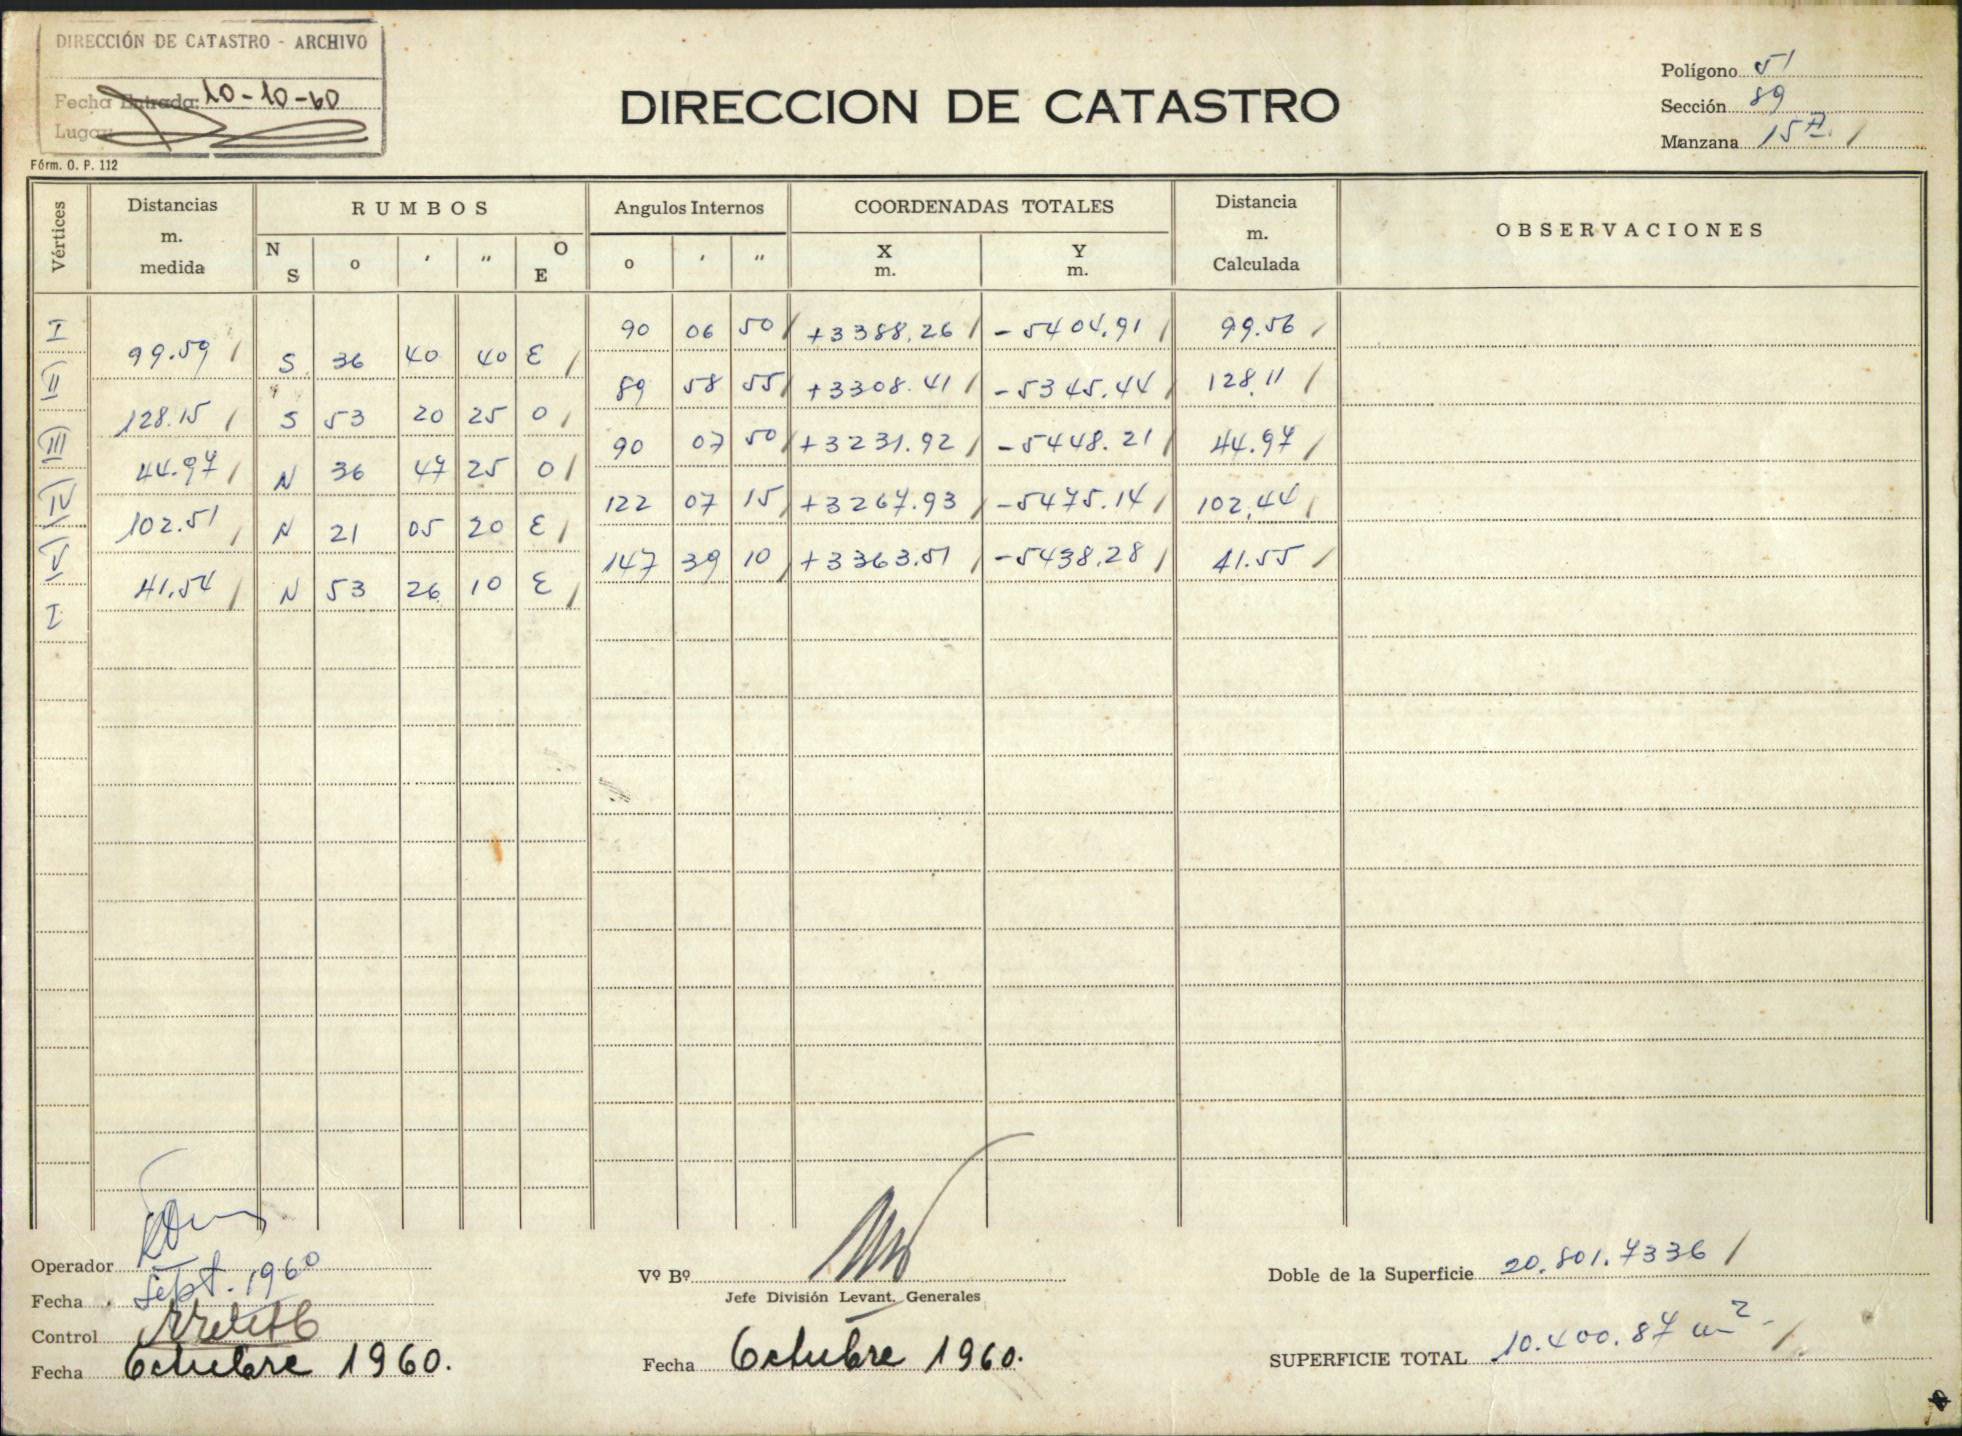 DIRECCIÓN DE CATASTRO - ARCHIVO
Fecha Entrada: 10-10-60
Lugar
Fórm. O. P. 112
DIRECCION DE CATASTRO
Polígono 51
Sección 89
Manzana 15 A. /
Vértices Distancias m. medida RUMBOS Angulos Internos COORDENADAS TOTALES Distancia m. Calculada OBSERVACIONES
N S o ' " O E o ' " X m. Y m.
I 90 06 50 / +3388.26 / -5404.91 / 99.56 /
99.59 / S 36 40 40 E /
II 89 58 55 / +3308.41 / -5345.44 / 128.11 /
128.15 / S 53 20 25 O /
III 90 07 50 / +3231.92 / -5448.21 / 44.97 /
44.97 / N 36 47 25 O /
IV 122 07 15 / +3267.93 / -5475.14 / 102.44 /
102.51 / N 21 05 20 E /
V 147 39 10 / +3363.51 / -5438.28 / 41.55 /
41.54 / N 53 26 10 E /
I
Operador
Fecha Sept. 1960
Control
Fecha Octubre 1960.
Vº Bº
Jefe División Levant. Generales
Fecha Octubre 1960.
Doble de la Superficie 20.801.7336 /
SUPERFICIE TOTAL 10.400.87 m² - /